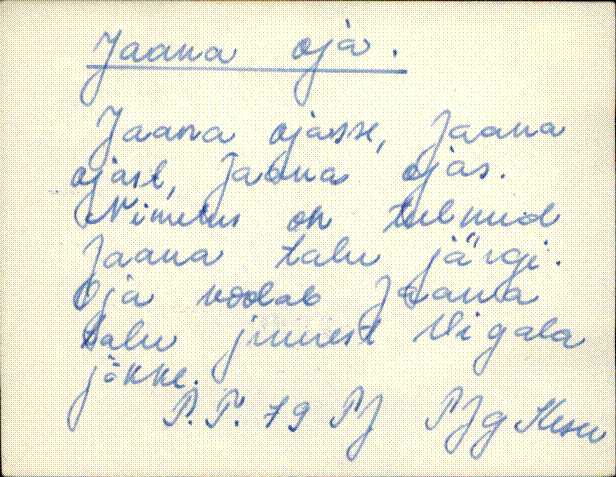 Jaana oja.
Jaana ojasse, Jaana
ojast, Jaana ojas.
Nimetus on tulnud
Jaana talu järgi.
Oja voolab Jaana
talu juurest Vigala
jõkke.
P. T. 79 PJ PJg Kesu